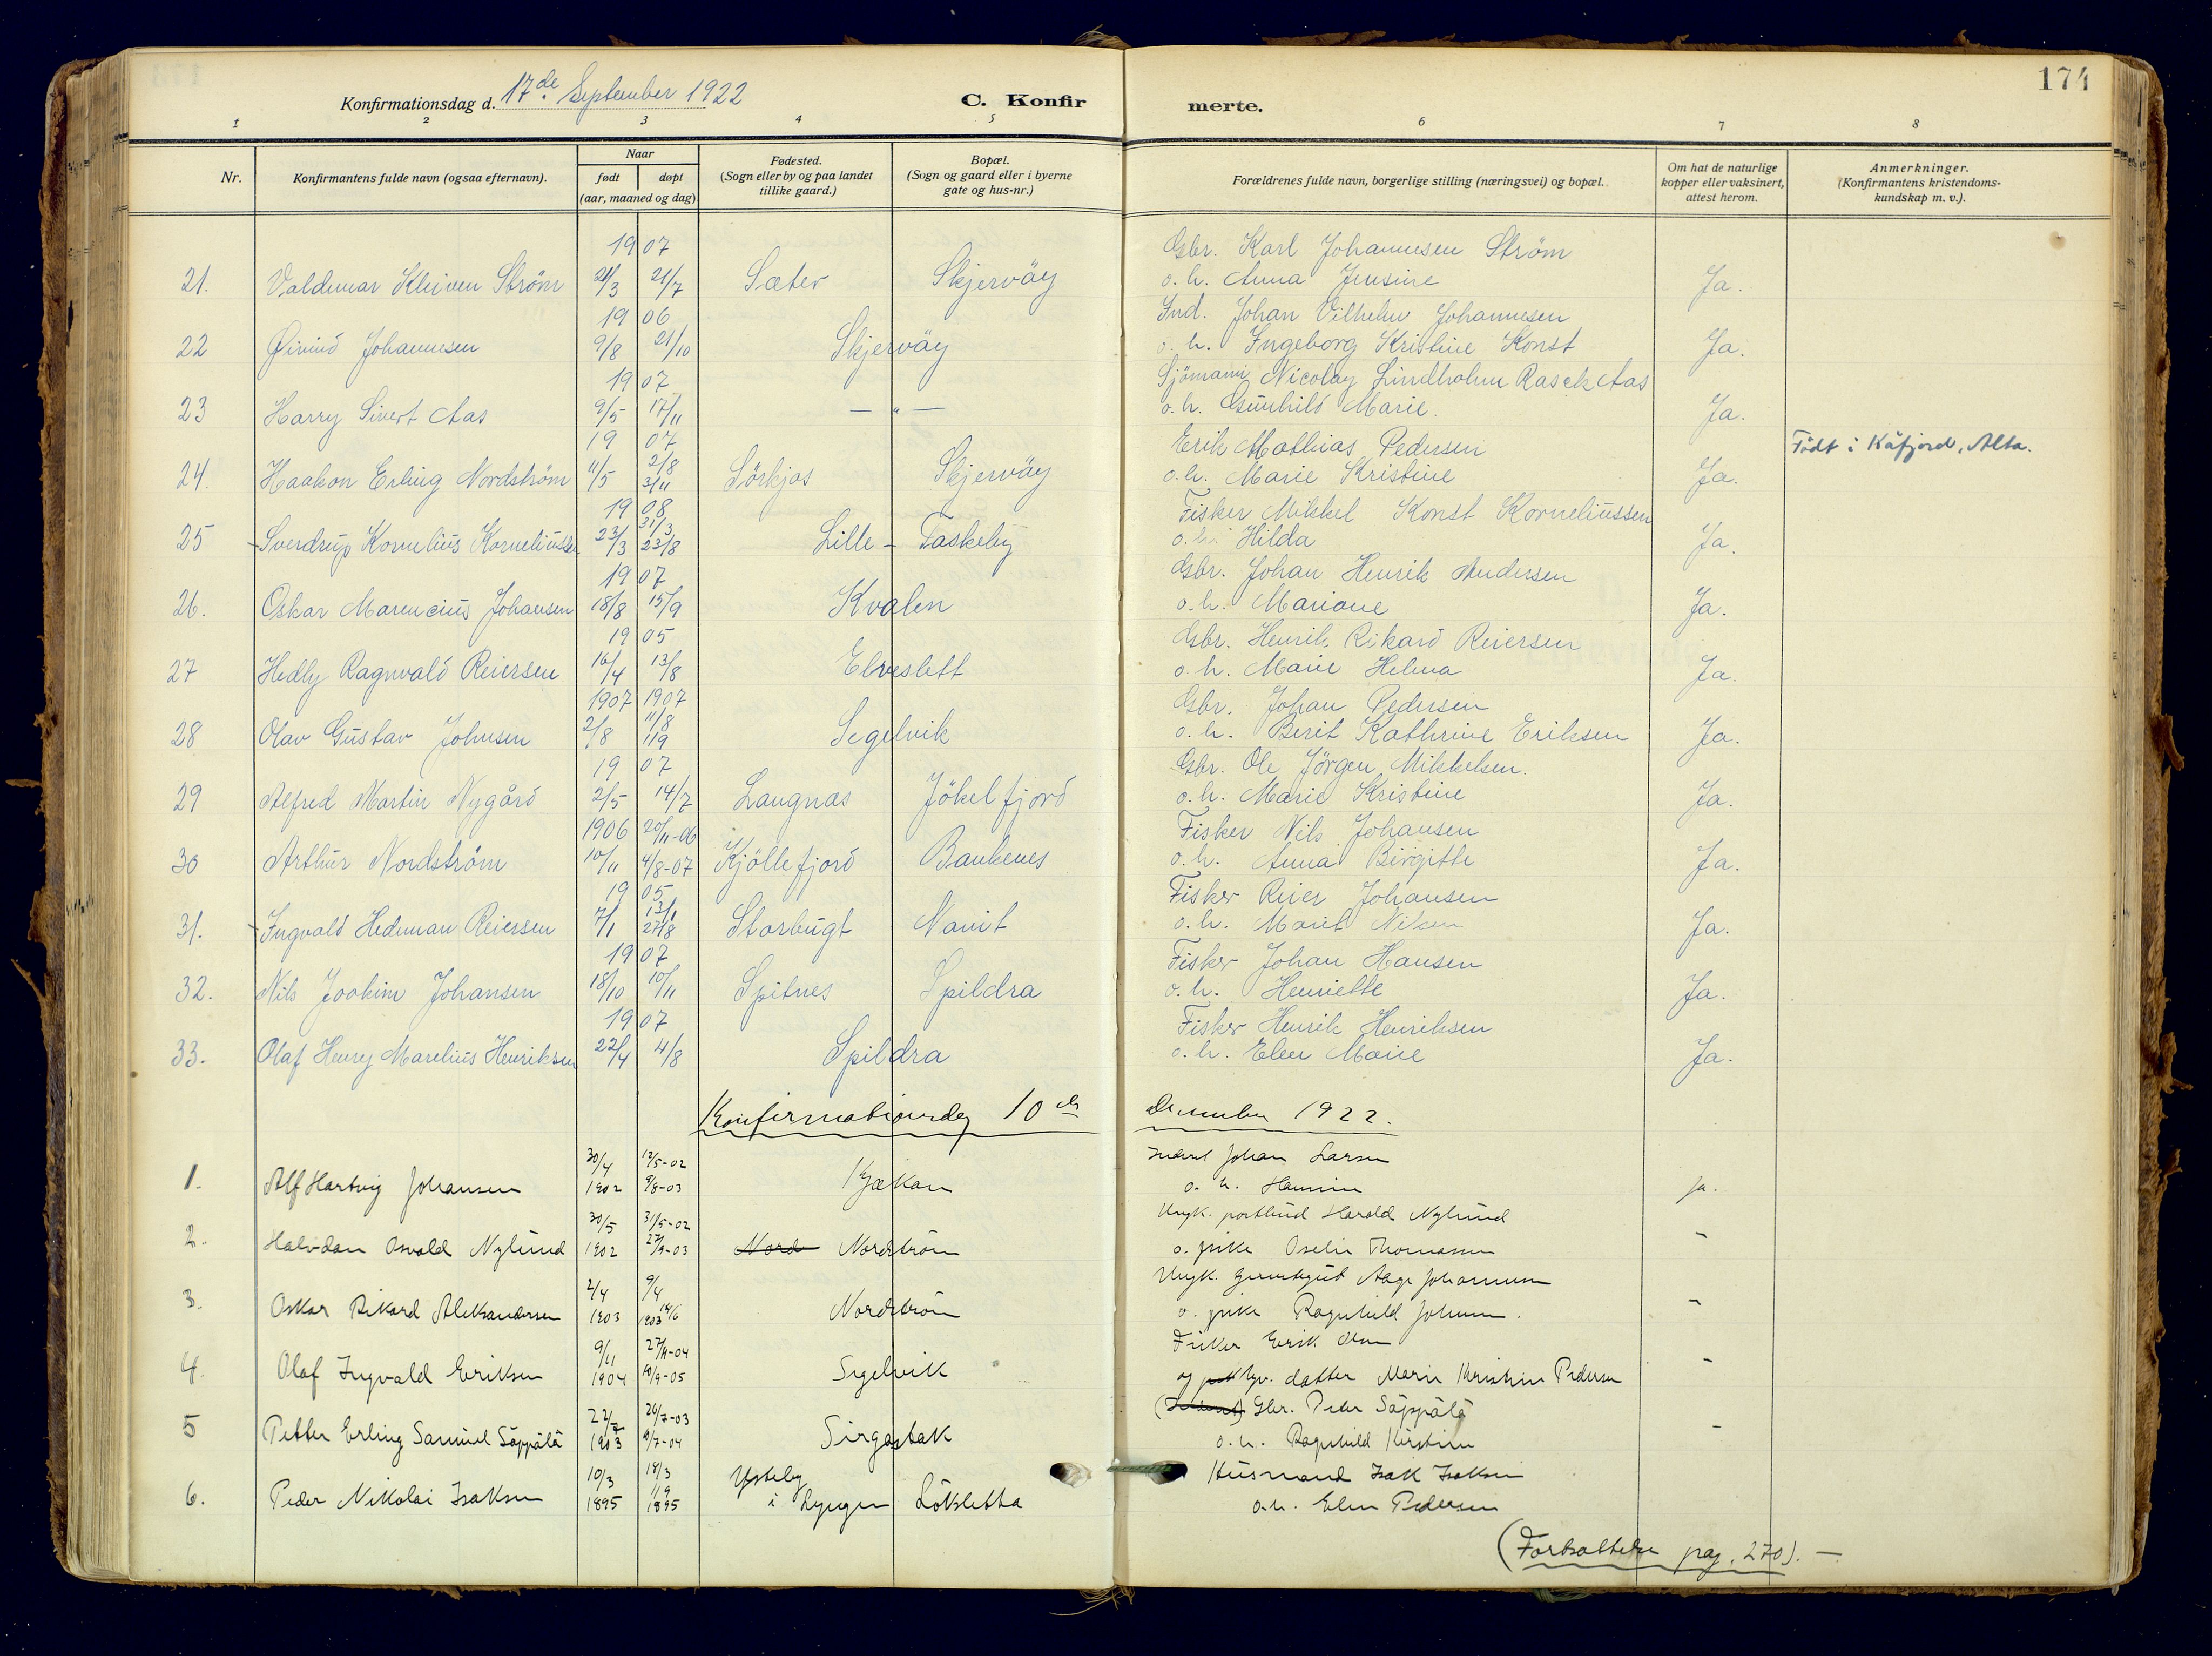 174
Konfirmationsdag d. 17de September 1922 C. Konfirmerte.
1 2 3 4 5 6 7 8
Nr.
Konfirmantens fulde navn (ogsaa efternavn).
Naar
født døpt
(aar, maaned og dag)
Fødested.
(Sogn eller by og paa landet
tillike gaard.)
Bopæl.
(Sogn og gaard eller i byerne
gate og hus-nr.)
Forældrenes fulde navn, borgerlige stilling (næringsvei) og bopæl.
Om hat de naturlige
kopper eller vaksinert,
attest herom.
Anmerkninger.
(Konfirmantens kristendoms-
kundskap m. v.).
1907 Gbr. Karl Johannesen Ström
21. Valdemar Kleiven Ström 21/3 21/7 Sæter Skjervöy o. h. Anna Jensine Ja.
1906 Ind. Johan Vilhelm Johannesen
22 Øivind Johannesen 9/8 21/10 Skjervöy o. h. Ingeborg Kristine Konst Ja.
1907 Sjömann Nicolay Lindholm Rasck Aas
23 Harry Sivert Aas 9/5 17/11 — " — o. h. Gunhild Marie. Ja.
1907 Erik Mathias Pedersen Födt i Kåfjord, Alta.
24. Haakon Erling Nordström 11/5 2/8 3/11 Sörkjos Skjervöy o. h. Marie Kristine Ja.
1908 Fisker Mikkel Konst Korneliussen
25 Sverdrup Kornelius Korneliussen 23/3 31/3 23/8 Lille-Taskeby o. h. Hilda Ja.
1907 Gbr. Johan Henrik Andersen
26. Oskar Marencius Johansen 18/8 15/9 Kvalen o. h. Mariane Ja.
1905 Gbr. Henrik Rikard Reiersen
27 Hedly Ragnvald Reiersen 16/4 13/8 Elveslett o. h. Marie Helena Ja.
1907 1907 Gbr. Johan Pedersen
28 Olav Gustav Johnsen 2/8 11/8 1/9 Segelvik o. h. Berit Kathrine Eriksen Ja.
1907 Gbr. Ole Jörgen Mikkelsen.
29 Alfred Martin Nygård 2/5 14/7 Langnas Jökelfjord o. h. Marie Kristine Ja.
1906 20/11-06 Fisker Nils Johansen
30 Arthur Nordström 10/11 4/8-07 Kjöllefjord Bankenes o. h. Anna Birgitte Ja.
1905 Fisker Reier Johansen
31. Ingvald Hedeman Reiersen 7/1 13/1 27/8 Storbugt Navit o. h. Marit Nilsen Ja.
1907 Fisker Johan Hansen
32. Nils Joakim Johansen 18/10 10/11 Spitnes Spildra o. h. Henriette Ja.
1907 Fisker Henrik Henriksen
33. Olaf Henry Marelius Henriksen 22/4 4/8 Spildra o. h. Elen Marie Ja.
Konfirmationsdag 10de December 1922.
30/4 12/5-02 Johan Larsen
1. Alf Hartvig Johansen 1902 9/8-03 Kjækan o. h. Hannine ja.
30/5 31/5-02 Ungk. Harald Nylund
2. Halvdan Osvald Nylund 1902 27/9-03 Nord Nordström o. pike Oselie Thomassen -
2/4 9/4 Ungk. Aage Johannesen
3. Oskar Rikard Aleksandersen 1903 1903 14/6 Nordström o. pike Ragnhild Johnsen. -
9/11 27/11-04 Fisker Erik Olsen
4. Olaf Ingvald Eriksen 1904 10/9-05 Segelvik og gbr. datter Marie Kristine Pedersen -
22/7 26/7-03 Gbr. Peder Säppälä
5 Petter Erling Samuel Säppälä 1903 9/7-04 Sirgastak o. h. Ragnhild Kirstine -
10/3 18/3 Ysteby Husmand Isak Isaksen
6. Peder Nikolai Isaksen 1895 1/9 1895 i Lyngen Löksletta o. h. Elen Pedersen
(Fortsættelse pag. 270). —